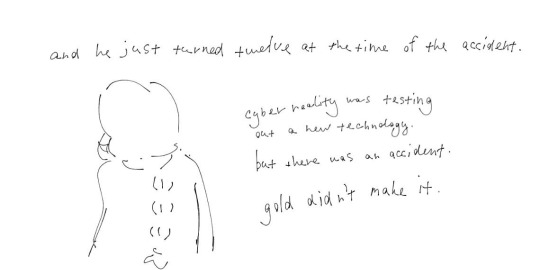 and he just turned twelve at the time of the accident.
cyber reality was testing
out a new technology.
but there was an accident.
gold didn't make it.